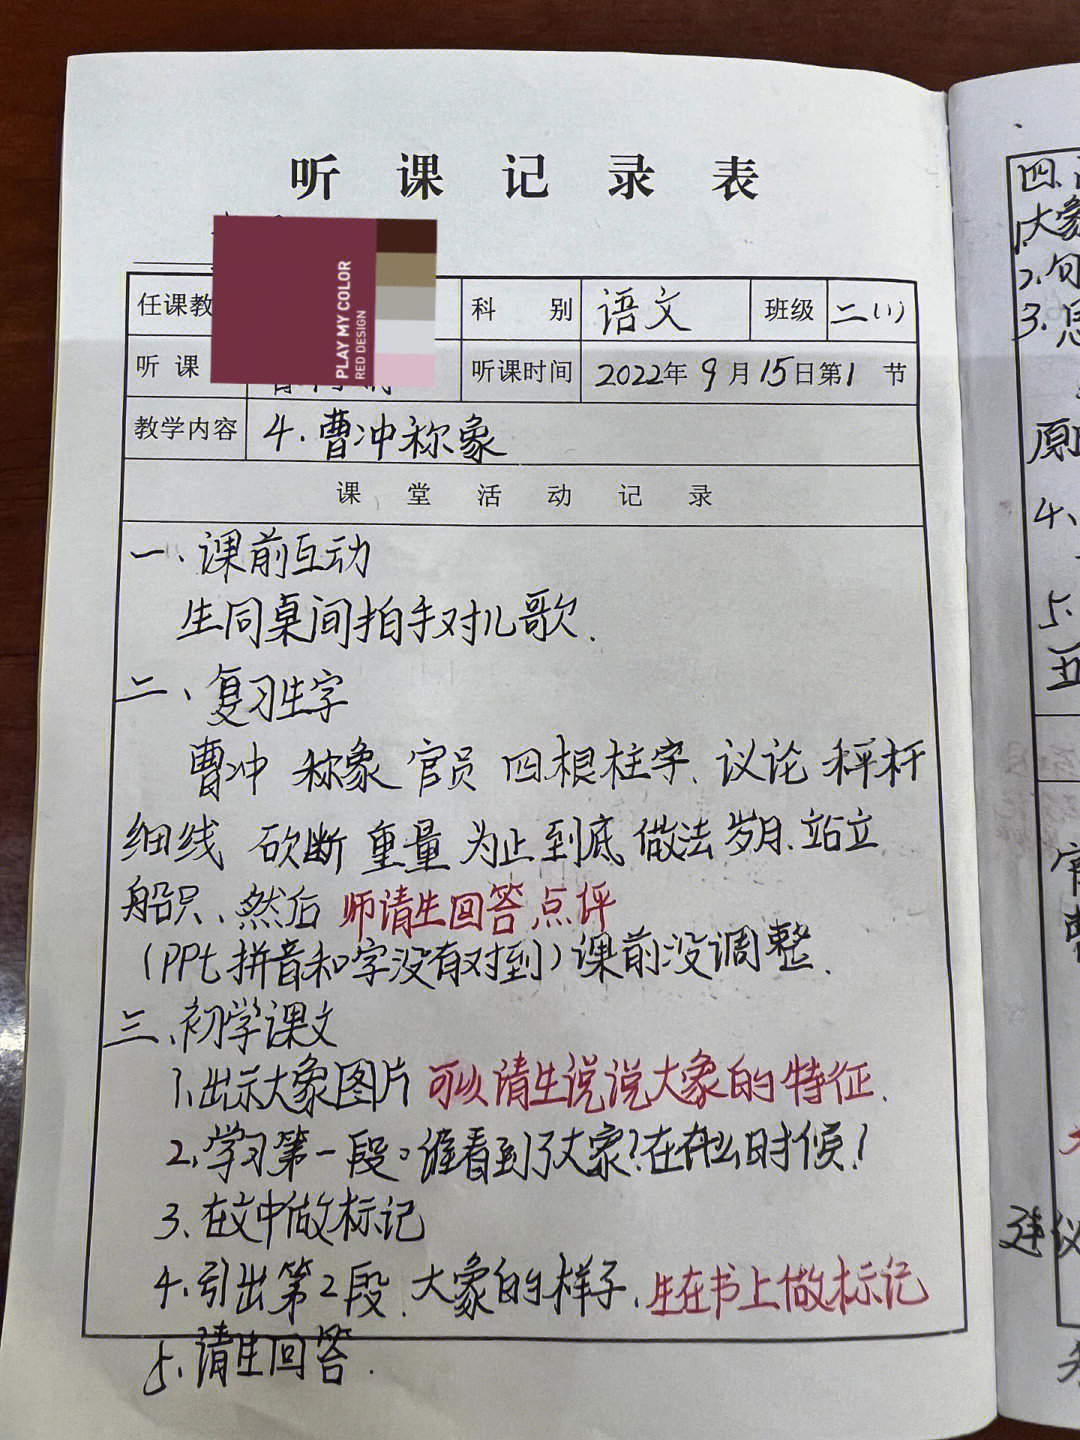 听课记录表
PLAY MY COLOR
RED DESIGN
任课教
科别 语文 班级 二(1)
听课
听课时间 2022年9月15日第1节
教学内容 4.曹冲称象
课堂活动记录
一、课前互动
生同桌间拍手对儿歌.
二、复习生字
曹冲 称象 官员 四根柱字、议论 秤杆
细线 砍断 重量 为止 到底 做法 岁月、站立
船只、然后 师请生回答,点评
(PPt拼音和字没有对到)课前没调整.
三、初学课文
1.出示大象图片 可以请生说说大象的特征.
2.学习第一段。谁看到了大象?在什么时候!
3、在文中做标记
4.引出第2段、大象的样子、生在书上做标记
5、请生回答.
四、
1.大象
2.句
3.
原
4、
5.
五
建议